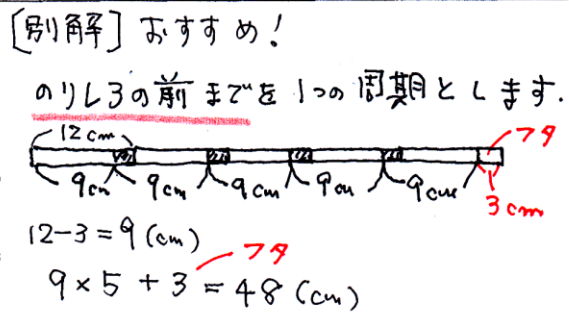 [別解] おすすめ!
のりしろの前までを1つの周期とします.
12cm
フタ
9cm 9cm 9cm 9cm 9cm
3cm
12-3=9(cm)
フタ
9×5+3=48(cm)